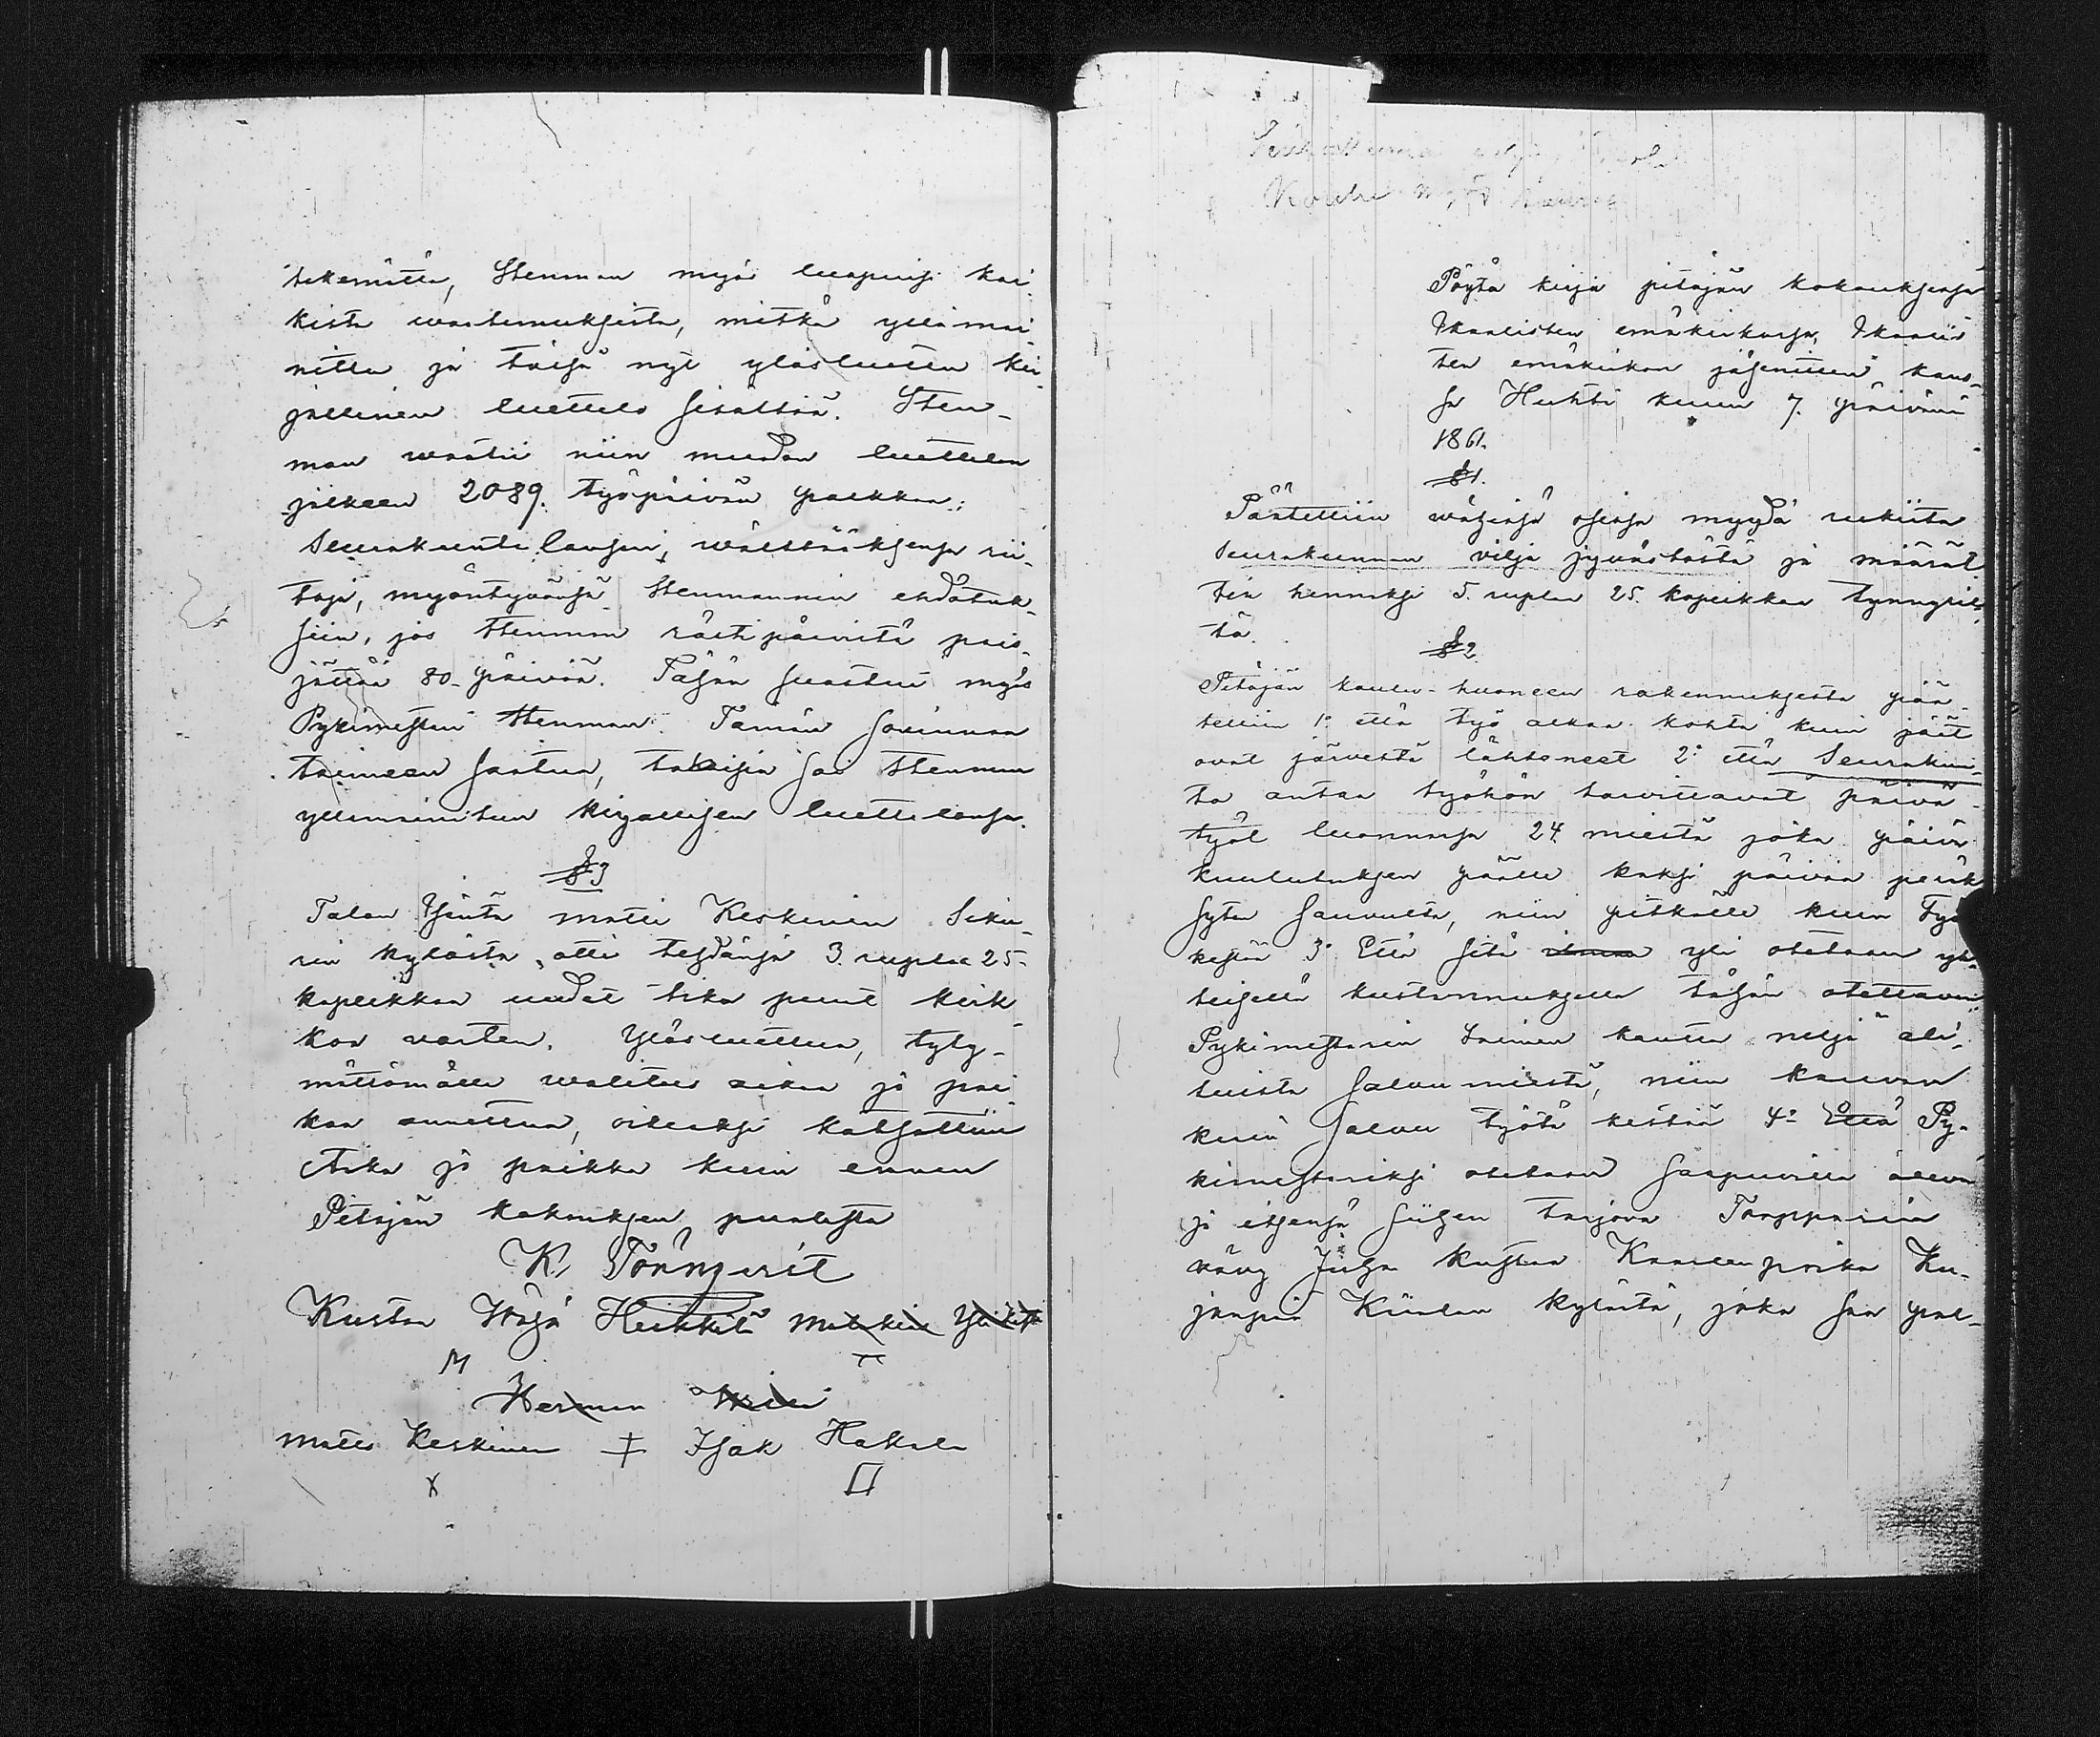 tekemättä, Stenman myös luopuisi kai-
kista wastemuksista, mitkä yllämai-
nittu ja täisä nyt ylösluettu kir-
jallinen luettelo sisältää. Sten-
man waatii niin muodon luettelon
jälkeen 2089. työpäivän palkkaa:
Seurakunta lausui, wälttääksensä rii-
toja, myöntyvänsä Stenmannin ehdotuk-
siin, jos Stenman rästipäivistä pois-
jättää 80 päivää. Tähän suostui myös
Pykimestari Stenman. Tämän sovinnon
toimeen saatua, takaisin sai Stenman
yllämainitun kirjallisen luettelonsa.
§ 3
Talon Isäntä Matti Keskinen Siku-
rin kylästä, otti tehdänsä 3. ruplaa 25.
kopeikkaa uudet tika puut kirk-
koa varten. Ylösluettua, tyty-
mättömälle walitus aikaa ja pai-
kaa annettua, oikeaksi katsottiin
Aika ja paikka kuin ennen
Pitäjän kokouksen puolesta
K. Törnqvist
Kustaa Heikkilä
M
Herman
Matti Keskinen Isak Hakala
X
Pöytä kirja pitäjän kokouksessa
Ikaalisten emäkirkossa, Ikaalis
ten emäkirkon jäsenitten kans-
sa Huhti kuun 7. päivänä
1861.
§ 1.
Päätettiin wähissä osissa myydä rukiita
Seurakunnan vilja jyvästöstä ja määrät-
tiin hinnaksi 5. ruplaa 25. kopeikkaa tynnyril-
tä.
§ 2
Pitäjän koulu-huoneen rakennuksesta pää-
tettiin 1:o että työ alkaa kohta kuin jäät
ovat järvestä lähteneet 2:o että Seurakun-
ta antaa työhön tarvittavat päivä-
työt luonnossa 24 miestä joka päivä
kuulutuksen päälle kaksi päivää peräk
sytu sanvulta, niin pitkälle kuin Työ
kestää 3:o Että sitä yli otetaan yh-
teisellä kustannuksella tähän otettavan
Pykimestarin toimen kautta neljä ali-
tuista salvumiestä, niin kauvan
kuin salvu työtä kestää 4:o Että Py-
kimestariksi otetaan saapuvilla oleva
ja itsensä siihen tarjova Torpparin
väng Juha Kustaa Kaarlenpoika Ku-
janpää Kiialan kylästä, joka saa pal-